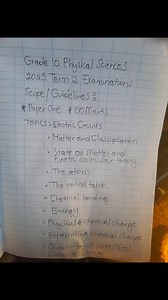 Grade 10 Physical Sciences
2025 Term 2 Examinations
Scope/Guidelines
* Paper One 100 Marks
Topics: Electric Circuits
• Matter and Classification
• State of Matter and
Kinetic molecular theory
• The atom
• The periodic table
• Chemical bonding
• Energy
• Physical & chemical change
• Representing chemical change